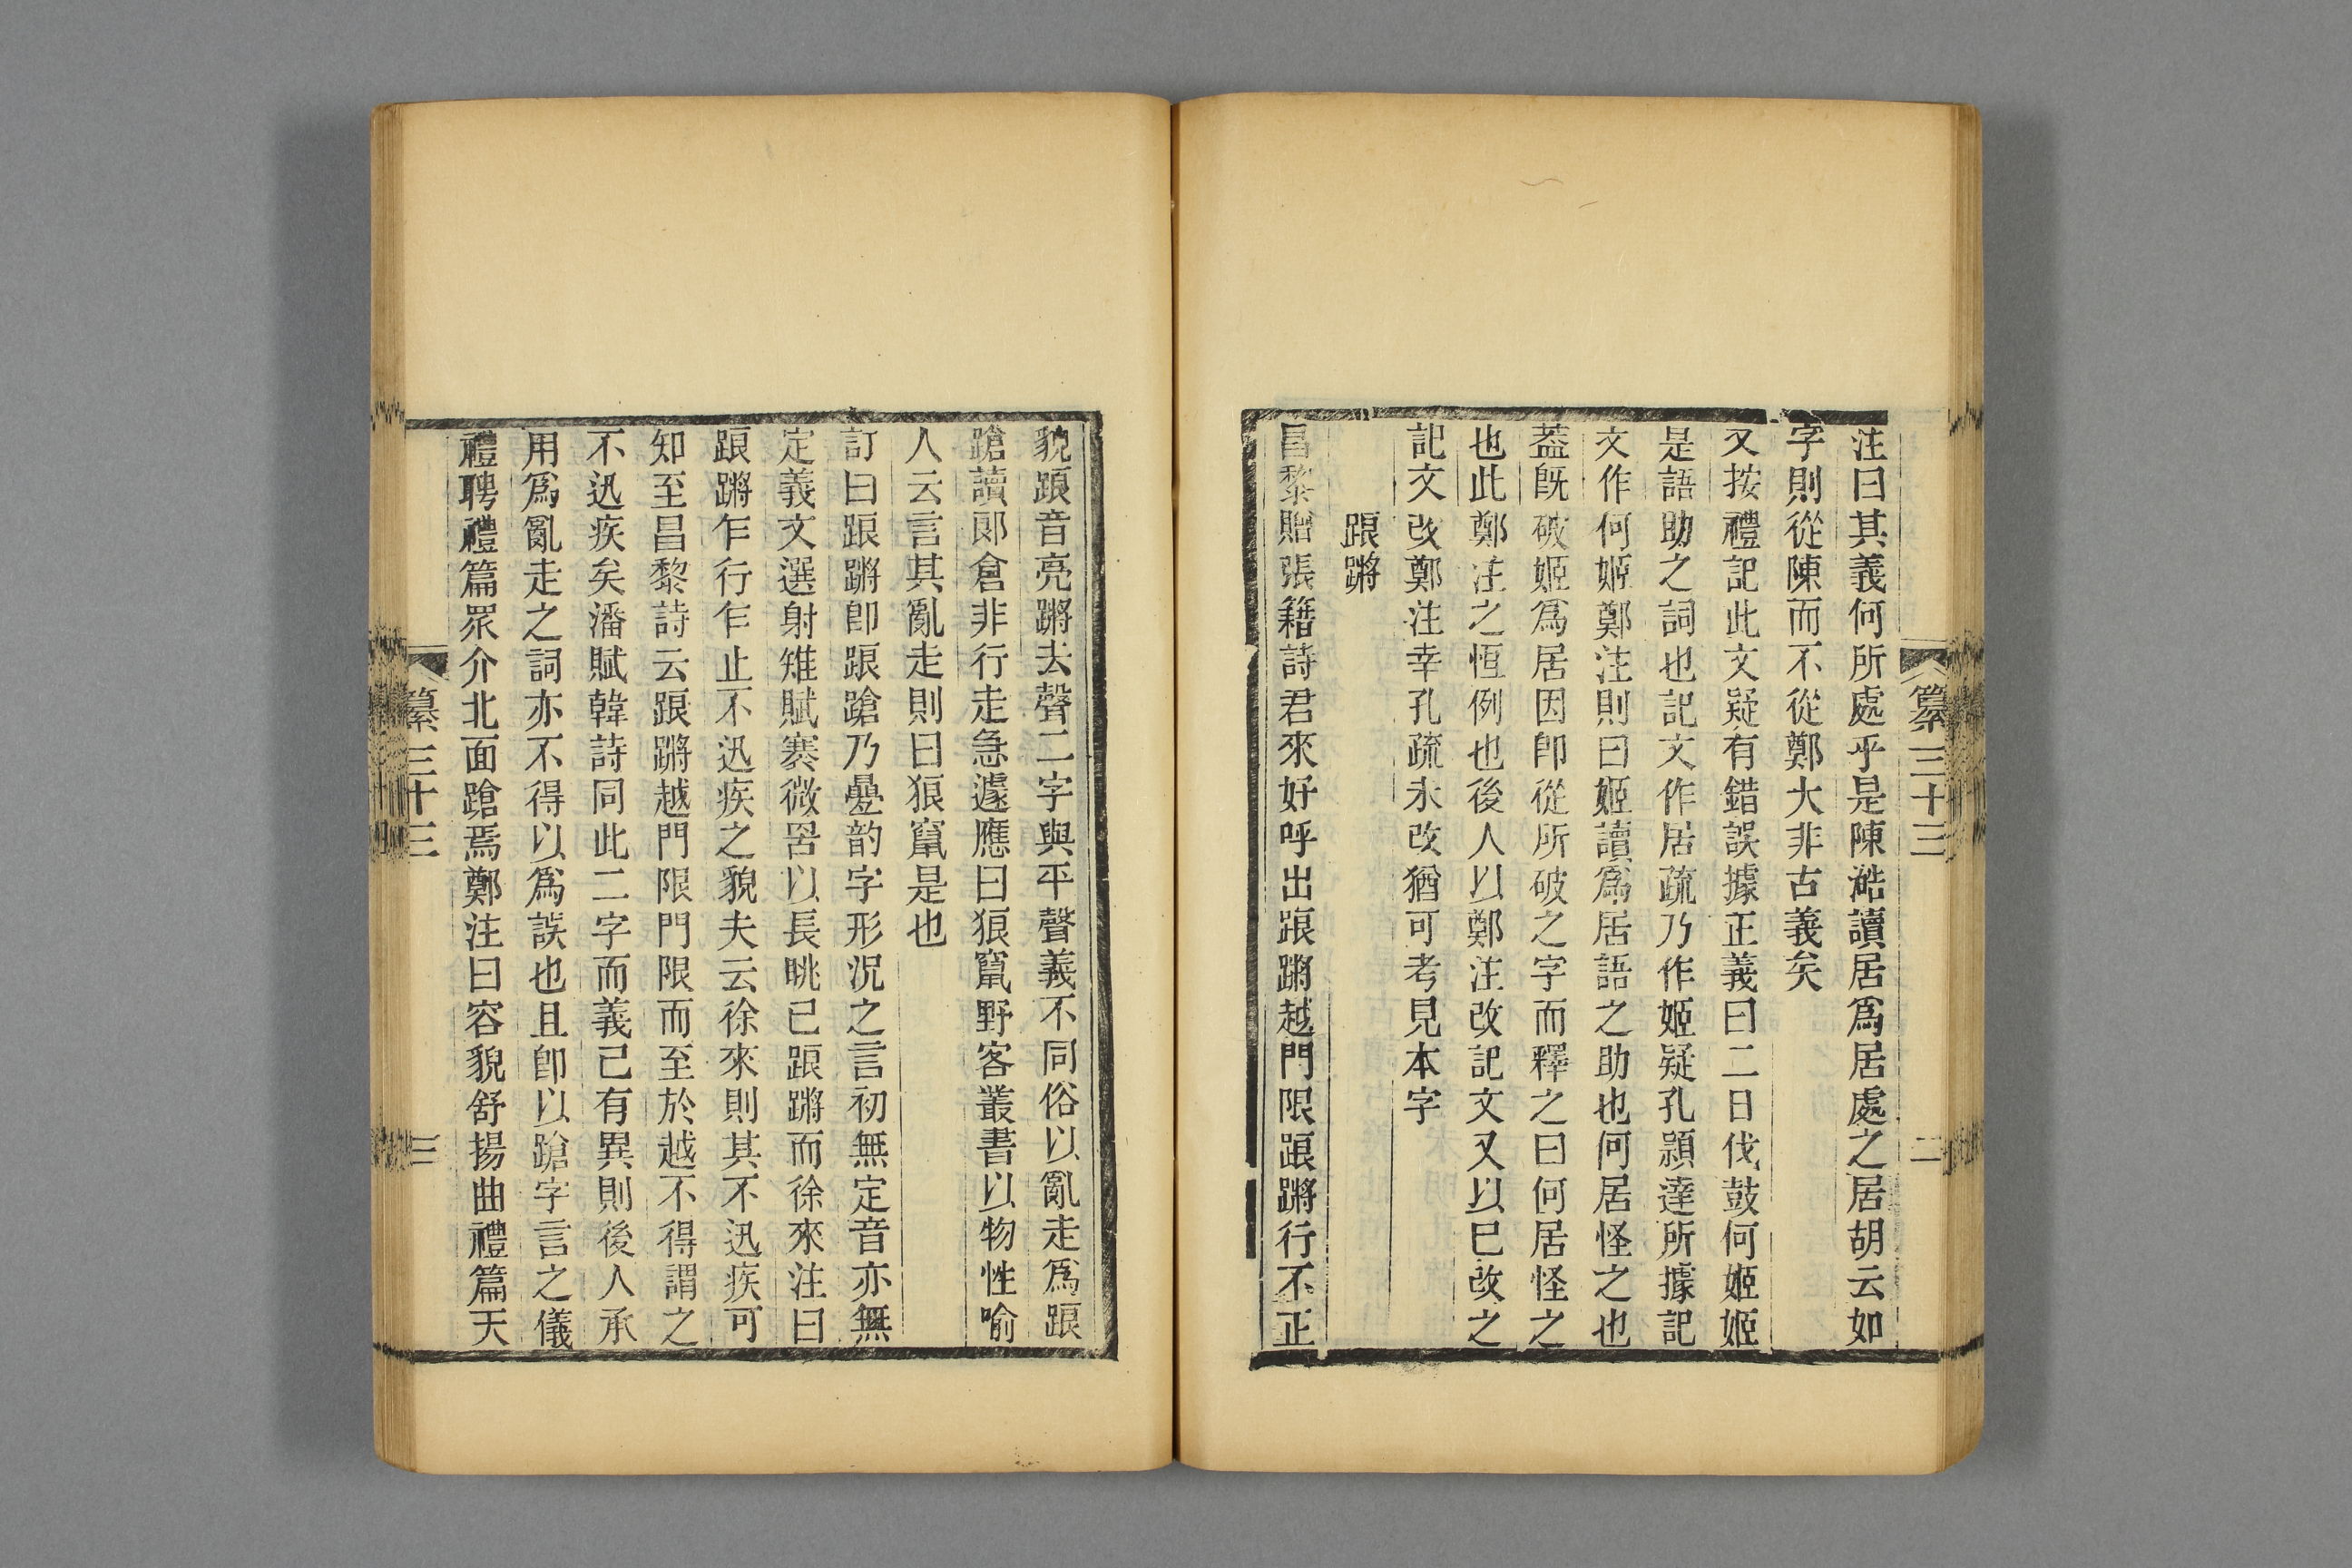 注曰其義何所處乎是陳澔讀居爲居處之居胡云如
字則從陳而不從鄭大非古義矣
又按禮記此文疑有錯誤據正義曰二日伐鼓何姬姬
是語助之詞也記文作居疏乃作姬疑孔頴達所據記
文作何姬鄭注則曰姬讀爲居語之助也何居怪之也
葢既破姬爲居因卽從所破之字而釋之曰何居怪之
也此鄭注之恒例也後人以鄭注改記文又以巳改之
記文改鄭注幸孔疏未改猶可考見本字
踉蹡
昌黎贈張籍詩君來好呼出踉蹡越門限踉蹡行不正
纂三十三
二
貌踉音亮蹡去聲二字與平聲義不同俗以亂走爲踉
蹌讀郞倉非行走急遽應曰狼竄野客叢書以物性喻
人云言其亂走則曰狼竄是也
訂曰踉蹡卽踉蹌乃疊韵字形況之言初無定音亦無
定義文選射雉賦褰微罟以長眺已踉蹡而徐來注曰
踉蹡乍行乍止不迅疾之貌夫云徐來則其不迅疾可
知至昌黎詩云踉蹡越門限門限而至於越不得謂之
不迅疾矣潘賦韓詩同此二字而義已有異則後人承
用爲亂走之詞亦不得以爲誤也且卽以蹌字言之儀
禮聘禮篇眾介北面蹌焉鄭注曰容貌舒揚曲禮篇天
纂三十三
三